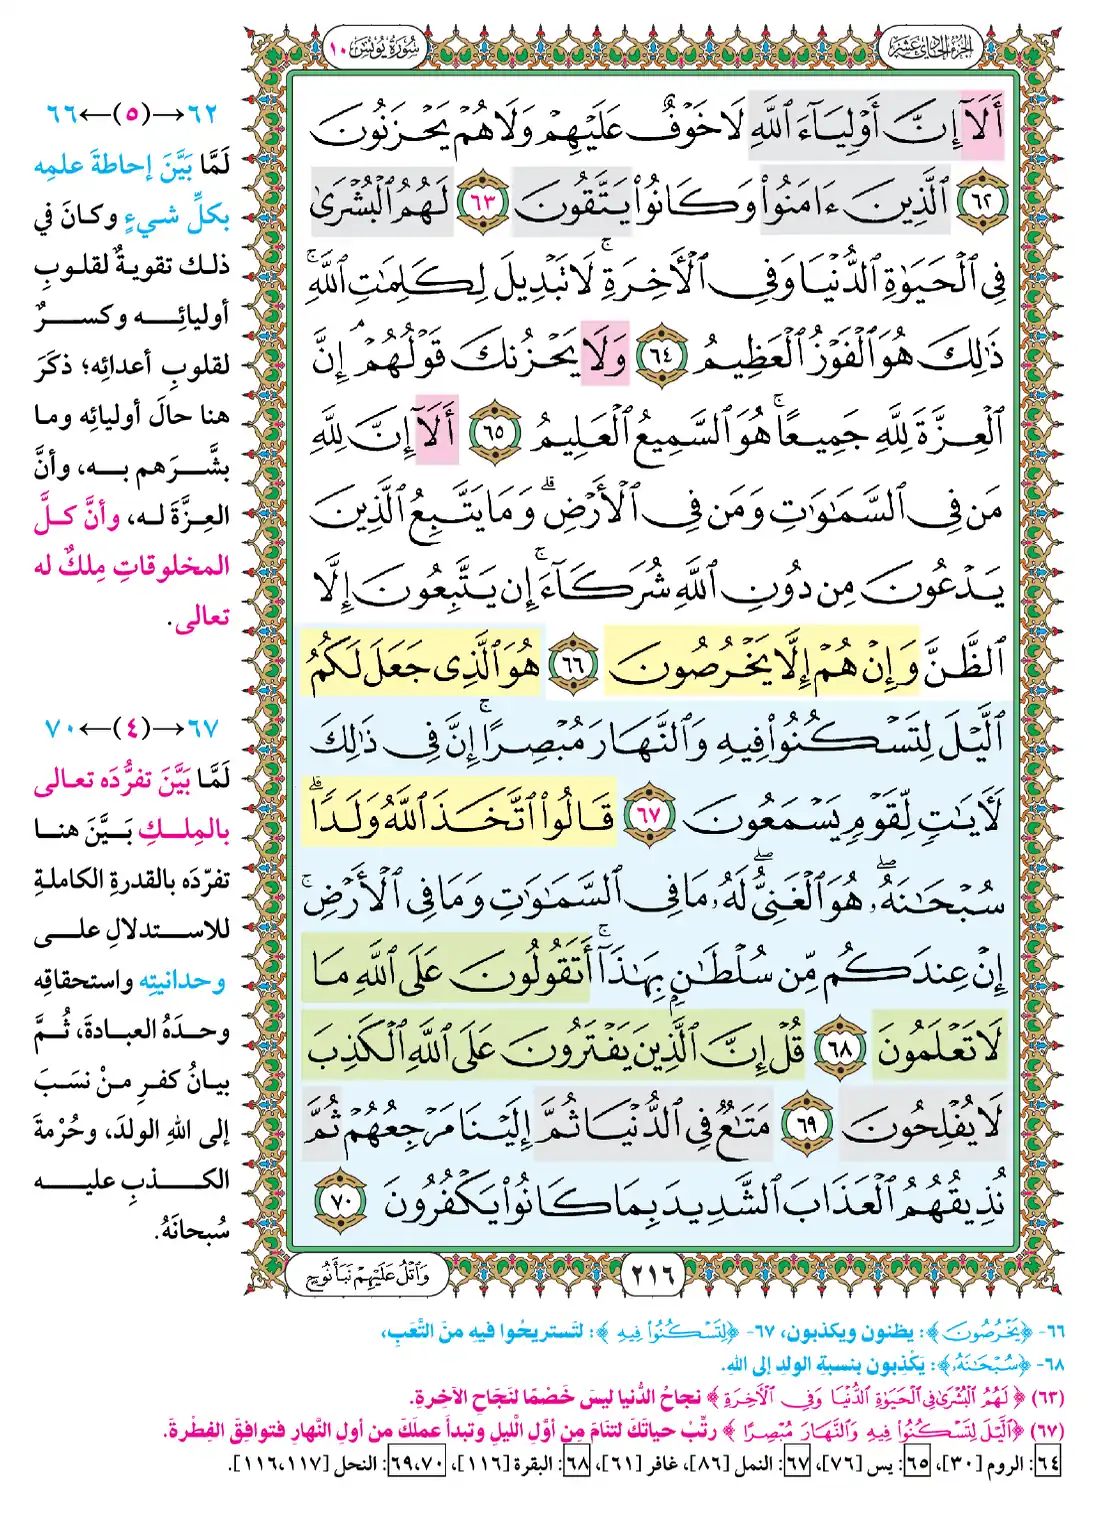 الجزء الحادي عشر
سورة يونس ١٠
أَلَآ إِنَّ أَوْلِيَآءَ ٱللَّهِ لَا خَوْفٌ عَلَيْهِمْ وَلَا هُمْ يَحْزَنُونَ
٦٢ ٱلَّذِينَ ءَامَنُوا۟ وَكَانُوا۟ يَتَّقُونَ ٦٣ لَهُمُ ٱلْبُشْرَىٰ
فِى ٱلْحَيَوٰةِ ٱلدُّنْيَا وَفِى ٱلْأَخِرَةِ ۚ لَا تَبْدِيلَ لِكَلِمَٰتِ ٱللَّهِ ۚ
ذَٰلِكَ هُوَ ٱلْفَوْزُ ٱلْعَظِيمُ ٦٤ وَلَا يَحْزُنكَ قَوْلُهُمْ ۘ إِنَّ
ٱلْعِزَّةَ لِلَّهِ جَمِيعًا ۚ هُوَ ٱلسَّمِيعُ ٱلْعَلِيمُ ٦٥ أَلَآ إِنَّ لِلَّهِ
مَن فِى ٱلسَّمَٰوَٰتِ وَمَن فِى ٱلْأَرْضِ ۗ وَمَا يَتَّبِعُ ٱلَّذِينَ
يَدْعُونَ مِن دُونِ ٱللَّهِ شُرَكَآءَ ۚ إِن يَتَّبِعُونَ إِلَّا
ٱلظَّنَّ وَإِنْ هُمْ إِلَّا يَخْرُصُونَ ٦٦ هُوَ ٱلَّذِى جَعَلَ لَكُمُ
ٱلَّيْلَ لِتَسْكُنُوا۟ فِيهِ وَٱلنَّهَارَ مُبْصِرًا ۚ إِنَّ فِى ذَٰلِكَ
لَأَيَٰتٍ لِّقَوْمٍ يَسْمَعُونَ ٦٧ قَالُوا۟ ٱتَّخَذَ ٱللَّهُ وَلَدًا ۗ
سُبْحَٰنَهُۥ ۖ هُوَ ٱلْغَنِىُّ ۖ لَهُۥ مَا فِى ٱلسَّمَٰوَٰتِ وَمَا فِى ٱلْأَرْضِ ۚ
إِنْ عِندَكُم مِّن سُلْطَٰنٍۭ بِهَٰذَآ ۚ أَتَقُولُونَ عَلَى ٱللَّهِ مَا
لَا تَعْلَمُونَ ٦٨ قُلْ إِنَّ ٱلَّذِينَ يَفْتَرُونَ عَلَى ٱللَّهِ ٱلْكَذِبَ
لَا يُفْلِحُونَ ٦٩ مَتَٰعٌ فِى ٱلدُّنْيَا ثُمَّ إِلَيْنَا مَرْجِعُهُمْ ثُمَّ
نُذِيقُهُمُ ٱلْعَذَابَ ٱلشَّدِيدَ بِمَا كَانُوا۟ يَكْفُرُونَ ٧٠
٢١٦
وَٱتْلُ عَلَيْهِمْ نَبَأَ نُوحٍ
٦٢→(٥)←٦٦
لَمَّا بَيَّنَ إحاطةَ علمِه
بكلِّ شيءٍ وكانَ في
ذلك تقويةٌ لقلوبِ
أوليائِه وكسرٌ
لقلوبِ أعدائِه؛ ذكَرَ
هنا حالَ أوليائِه وما
بشَّرَهم به، وأنَّ
العِزَّةَ له، وأنَّ كلَّ
المخلوقاتِ مِلكٌ له
تعالى.
٦٧→(٤)←٧٠
لَمَّا بَيَّنَ تفرُّدَه تعالى
بالمِلكِ بَيَّنَ هنا
تفرّدَه بالقدرةِ الكاملةِ
للاستدلالِ على
وحدانيتِه واستحقاقِه
وحدَهُ العبادةَ، ثُمَّ
بيانُ كفرِ مَنْ نسَبَ
إلى اللهِ الولدَ، وحُرْمةَ
الكذبِ عليه
سُبحانَهُ.
٦٦- ﴿يَخْرُصُونَ﴾: يظنون ويكذبون، ٦٧- ﴿لِتَسْكُنُوا۟ فِيهِ﴾: لتَستريحُوا فيهِ منَ التَّعَبِ،
٦٨- ﴿سُبْحَٰنَهُ﴾: يَكْذِبون بنسبةِ الولدِ إلى اللهِ.
(٦٣) ﴿لَهُمُ ٱلْبُشْرَىٰ فِى ٱلْحَيَوٰةِ ٱلدُّنْيَا وَفِى ٱلْأَخِرَةِ﴾ نجاحُ الدُّنيا ليسَ خَصْمًا لنَجَاحِ الآخِرةِ.
(٦٧) ﴿ٱلَّيْلَ لِتَسْكُنُوا۟ فِيهِ وَٱلنَّهَارَ مُبْصِرًا﴾ رتِّبْ حياتَكَ لتنَامَ مِن أوَّلِ الَّليلِ وتبدأَ عملَكَ من أولِ النَّهارِ فتوافِقَ الفِطْرةَ.
٦٤: الروم [٣٠]، ٦٥: يس [٧٦]، ٦٧: النمل [٨٦]، غافر [٦١]، ٦٨: البقرة [١١٦]، ٦٩،٧٠: النحل [١١٦،١١٧].